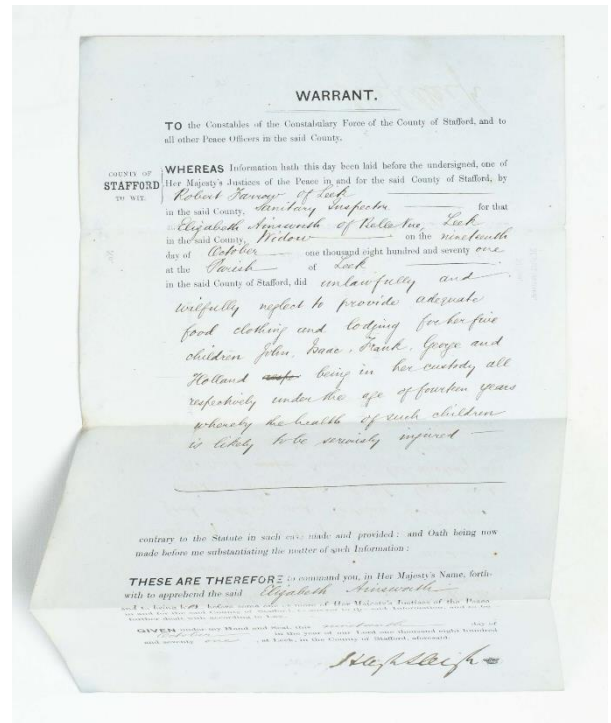 WARRANT.
TO the Constables of the Constabulary Force of the County of Stafford, and to
all other Peace Officers in the said County.
COUNTY OF
STAFFORD
TO WIT.
WHEREAS Information hath this day been laid before the undersigned, one of
Her Majesty's Justices of the Peace in and for the said County of Stafford, by
Robert Farrow of Leek
in the said County, Sanitary Inspector for that
Elizabeth Ainsworth of Belle Vue, Leek
in the said County, Widow on the nineteenth
day of October one thousand eight hundred and seventy one
at the Parish of Leek
in the said County of Stafford, did unlawfully and
wilfully neglect to provide adequate
food clothing and lodging for her five
children John, Isaac, Frank, George and
Holland being in her custody all
respectively under the age of fourteen years
whereby the health of such children
is likely to be seriously injured
contrary to the Statute in such case made and provided: and Oath being now
made before me substantiating the matter of such Information:
THESE ARE THEREFORE to command you, in Her Majesty's Name, forth-
with to apprehend the said Elizabeth Ainsworth
and to bring before some one or more of Her Majesty's Justices of the Peace
in and for the said County of Stafford to
further dealt with according to Law.
GIVEN under my Hand and Seal, this nineteenth day of
October in the year of our Lord one thousand eight hundred
and seventy one, at Leek, in the County of Stafford, aforesaid.